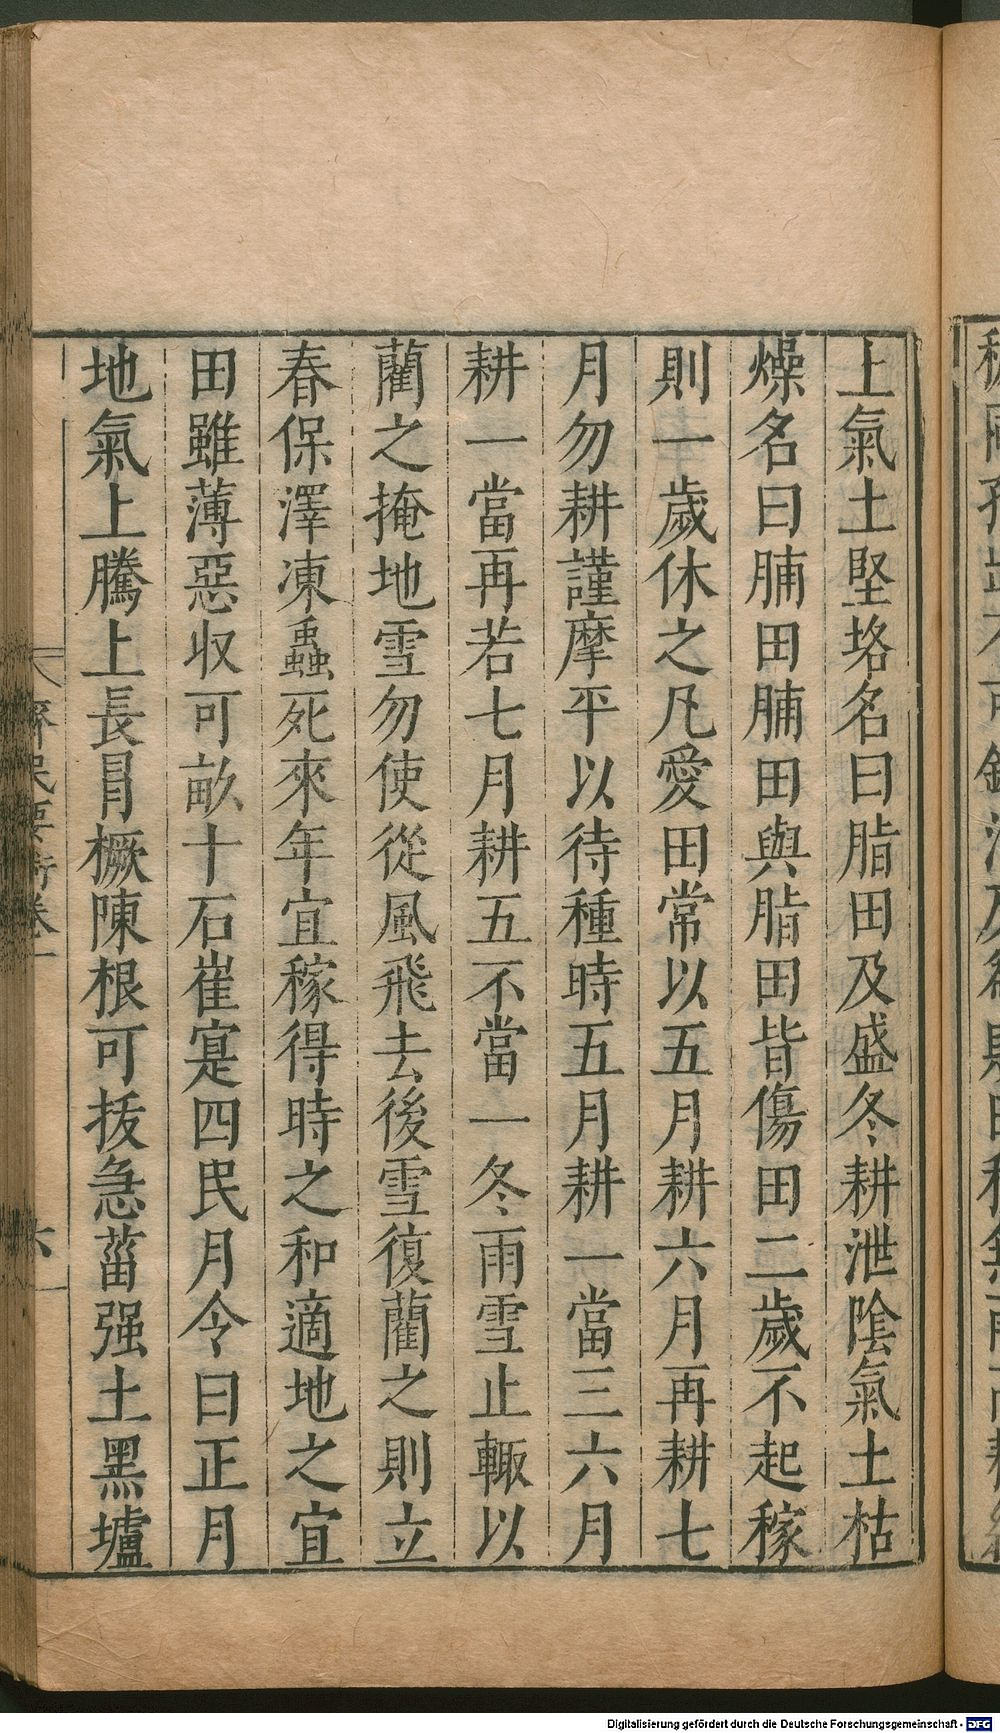 上氣土堅垎名曰脂田及盛冬耕泄陰氣土枯
燥名曰脯田脯田與脂田皆傷田二歲不起稼
則一歲休之凡愛田常以五月耕六月再耕七
月勿耕謹摩平以待種時五月耕一當三六月
耕一當再若七月耕五不當一冬雨雪止輙以
藺之掩地雪勿使從風飛去後雪復藺之則立
春保澤凍蟲死來年宜稼得時之和適地之宜
田雖薄惡収可畝十石崔寔四民月令曰正月
地氣上騰上長冐橛陳根可抜急菑强土黑壚
齊民要術卷一
六
Digitalisierung gefördert durch die Deutsche Forschungsgemeinschaft - DFG